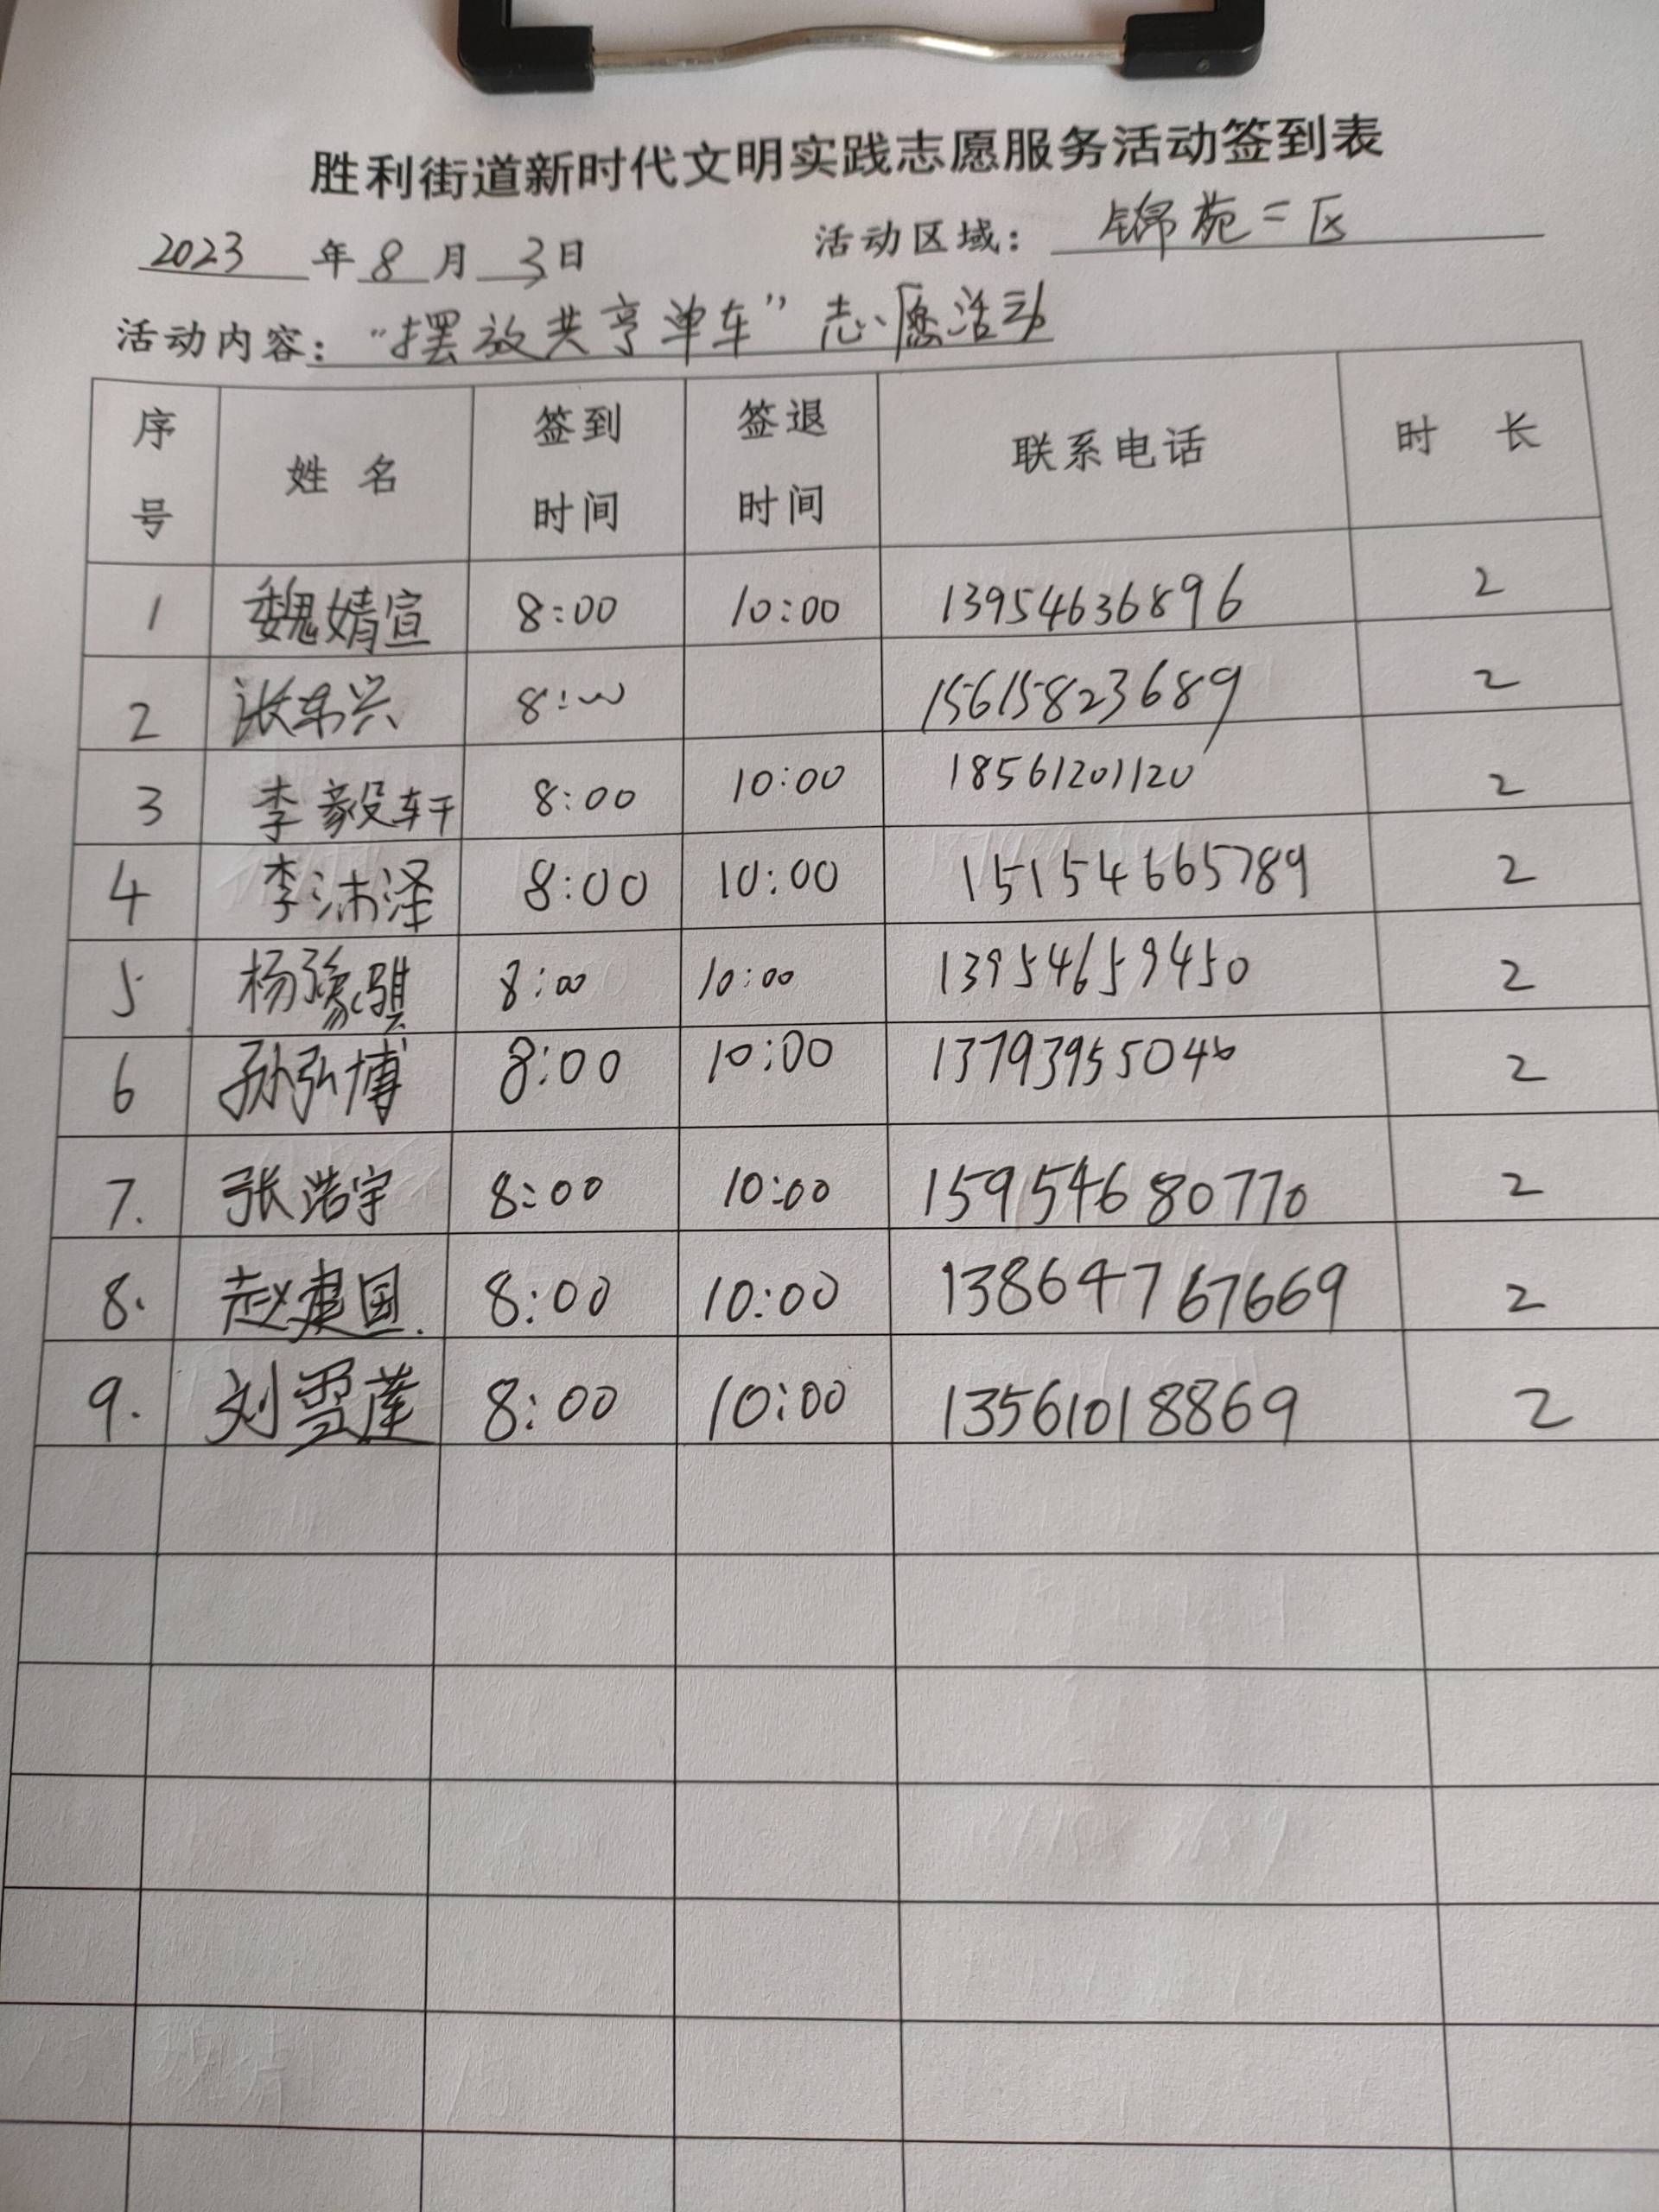 胜利街道新时代文明实践志愿服务活动签到表
2023 年 8 月 3 日 活动区域: 锦苑二区
活动内容: “摆放共享单车”志愿活动
序号 姓名 签到时间 签退时间 联系电话 时长
1 魏婧宣 8:00 10:00 13954636896 2
2 张东兴 8:00 15615823689 2
3 李毅轩 8:00 10:00 18561201120 2
4 李沛泽 8:00 10:00 15154665789 2
5 杨豫骐 8:00 10:00 13954659450 2
6 孙弘博 8:00 10:00 2
7. 张浩宇 8:00 10:00 15954680770 2
8. 赵建国. 8:00 10:00 13864767669 2
9. 刘雪莲 8:00 10:00 13561018869 2